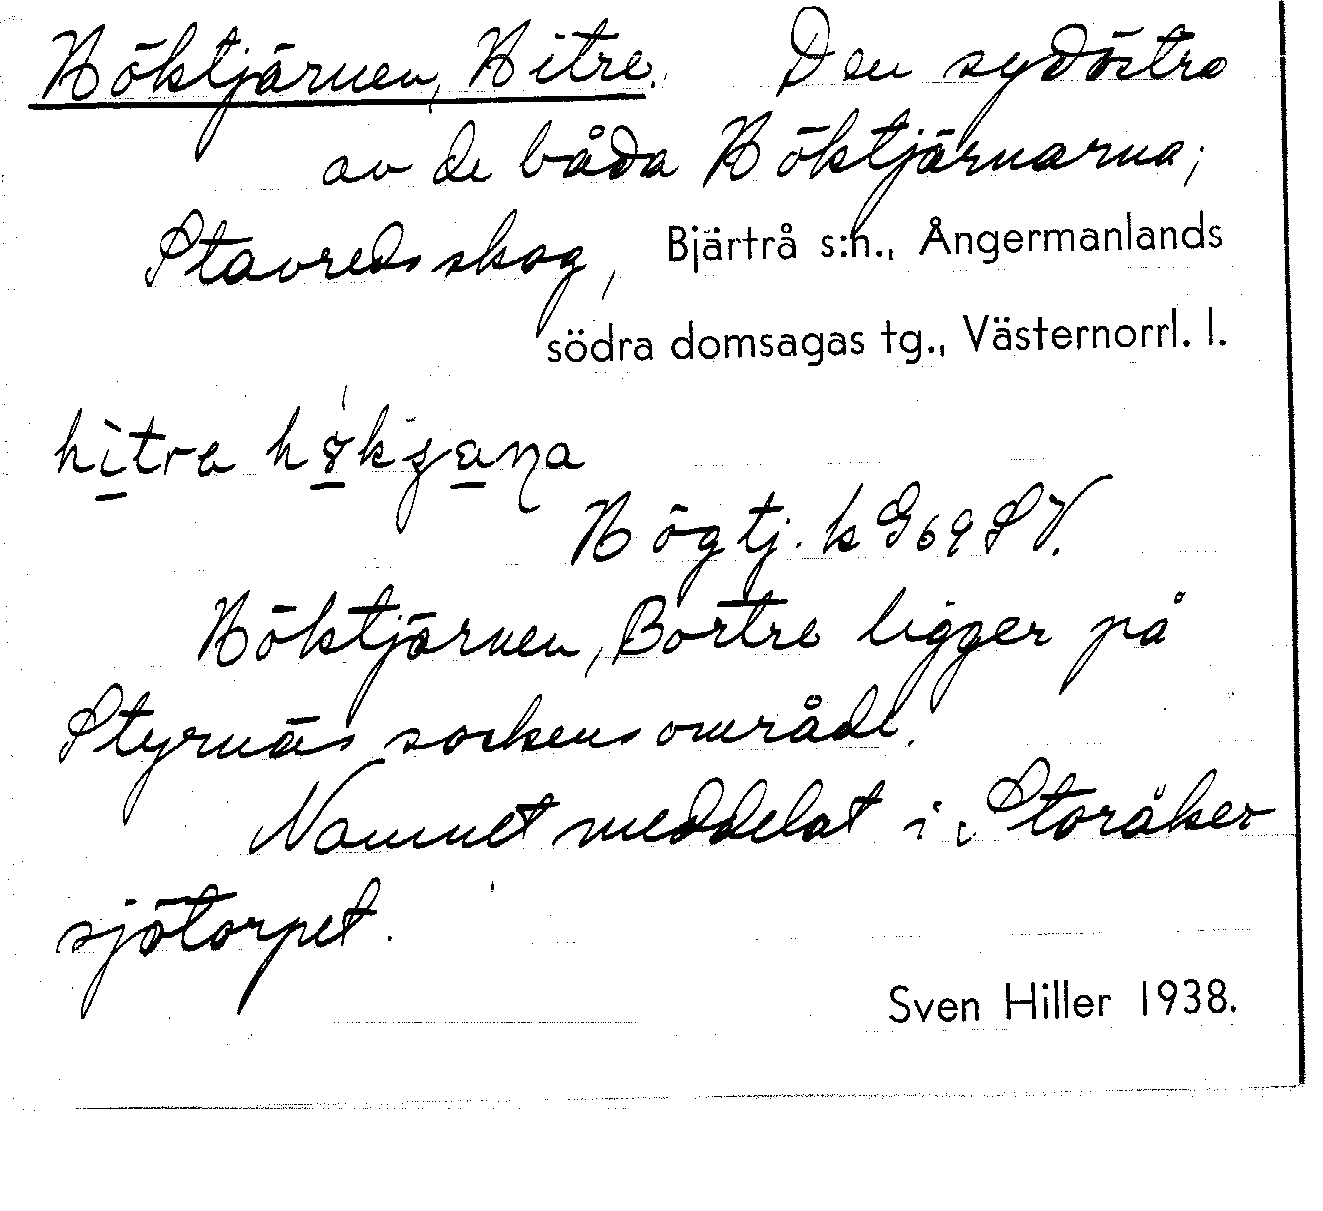 Höktjärnen, Hitre. Den sydöstra
av de båda Höktjärnarna;
Stavreds skog, Bjärtrå s:n., Ångermanlands
södra domsagas tg., Västernorrl. l.
hitra
Högtj. k G69SV.
Höktjärnen, Bortre ligger på
Styrnäs sockens område.
Namnet meddelat i Storåker
sjötorpet.
Sven Hiller 1938.